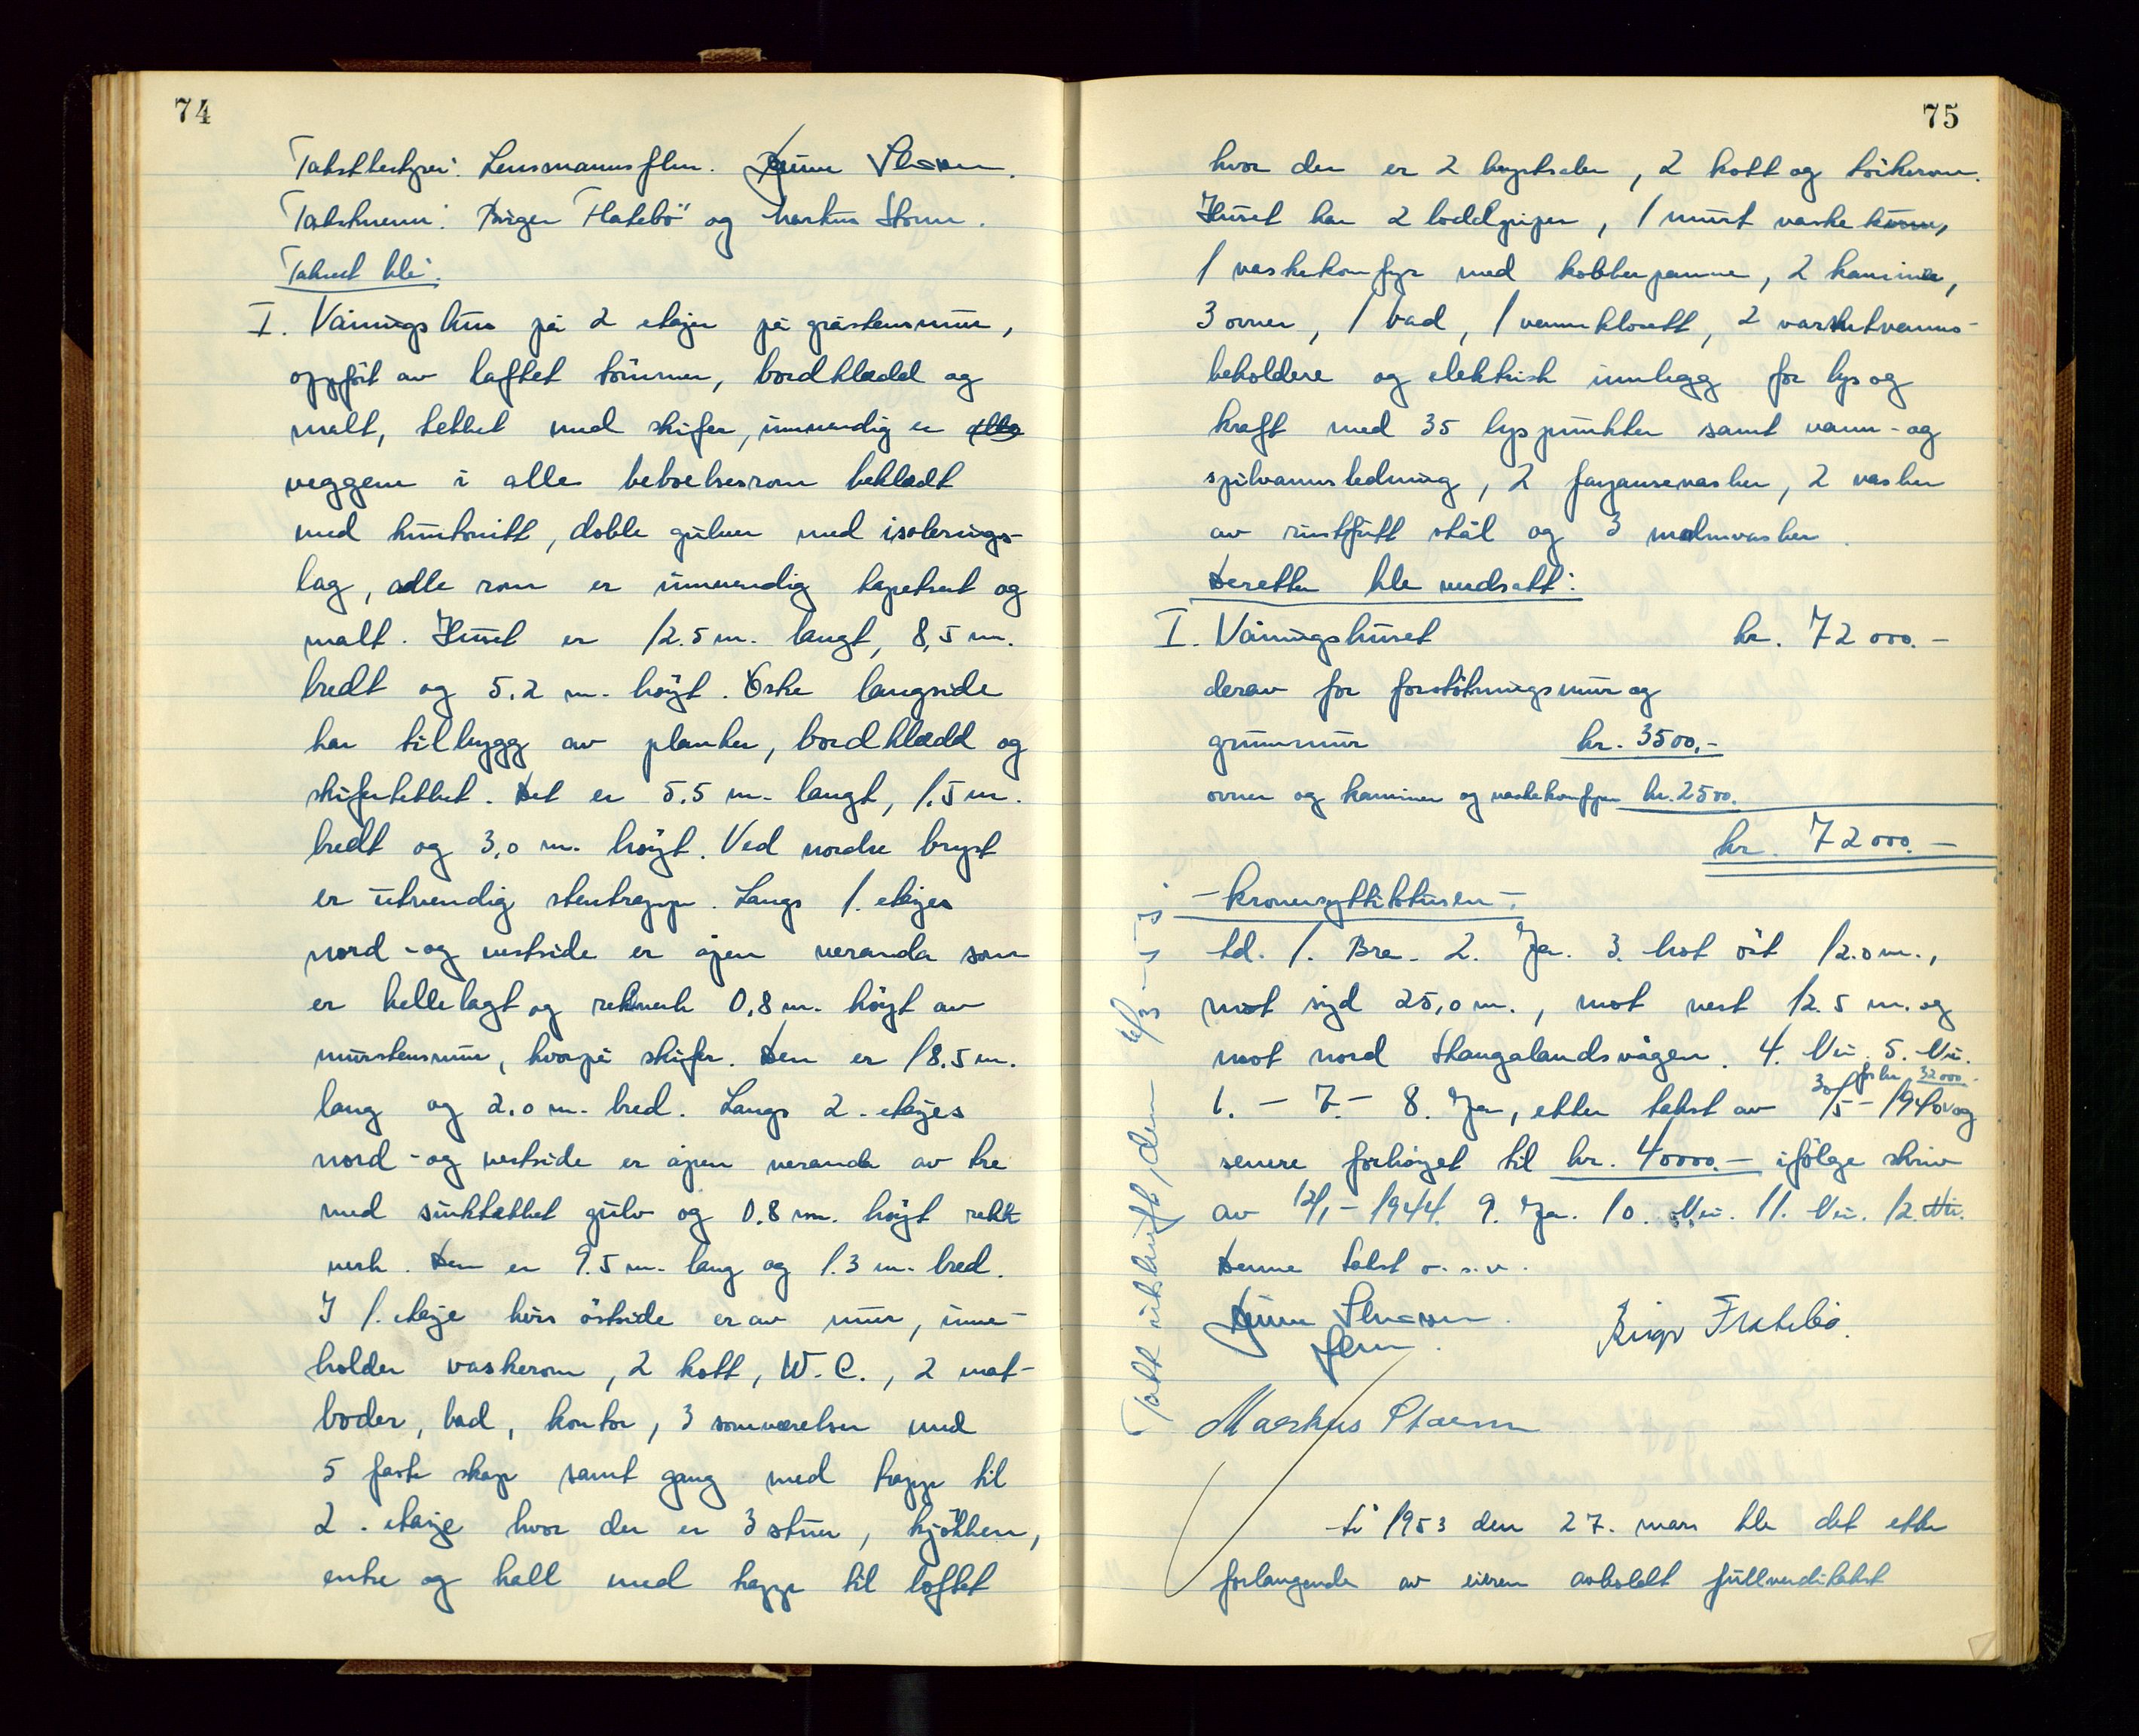 74
Takstbestyrer: Lensmannsflm.
Takstmenn: Birger Flatebö og Markus Storm.
Taksert ble:
I. Våningshus på 2 etasjer på gråstensmur,
oppfört av laftet tömmer, bordklædd og
malt, tekket med skifer, innvendig er alle
veggene i alle beboelsesrom bekledt
med huntonitt, doble gulver med isolerings-
lag, alle rom er innvendig tapetsert og
malt. Huset er 12.5 m. langt, 8,5 m.
bredt og 5.2 m. höyt. Östre langside
har tilbygg av planker, bordklædd og
skifertekket. Det er 5.5 m. langt, 1.5 m.
bredt og 3,0 m. höyt. Ved nordre bryst
er utvendig stentrapp. Langs 1. etasjes
nord- og vestside er åpen veranda som
er hellelagt og rekkverk 0,8 m. höyt av
murstensmur, hvorpå skifer. Den er 18.5 m.
lang og 2.0 m. bred. Langs 2. etasjes
nord- og vestside er åpen veranda av tre
med sinktekket gulv og 0.8 m. höyt rekk
verk. Den er 9.5 m. lang og 1.3 m. bred.
I 1. etasje hvis östside er av mur, inne-
holder vaskerom, 2 kott, W.C., 2 mat-
boder, bad, kontor, 3 soveværelser med
5 faste skap samt gang med trapp til
2. etasje hvor der er 3 stuer, kjökken,
entre og hall med trapp til loftet
75
hvor der er 2 kvistsaler, 2 kott og törkerom.
Huset har 2 loddpiper, 1 murt vaske
1 vaskekomfyr med kobberpanne, 2 kaminer,
3 ovner, 1 bad, 1 vannklosett, 2 varmtvanns-
beholdere og elektrisk innlegg for lys og
kraft med 35 lyspunkter samt vann- og
spilvannsledning, 2 fayansevasker, 2 vasker
av rustfritt stål og 3 malmvasker.
Deretter ble verdsatt:
I. Våningshuset kr. 72 000.-
derav for forstötningsmur og
grunnmur kr. 3500,-
ovner og kaminer og vaskekomfyr kr. 2500.
kr. 72 000.-
- kronersyttitotusen -.
td. 1. Bra. 2. Ja. 3. Mot öst 12.0 m.,
mot syd 25,0 m., mot vest 12.5 m. og
mot nord Skangalandsvågen. 4. Nei. 5. Nei.
6. - 7. - 8. Ja, etter takst av 30/5-1940 for kr. 32000.- og
senere forhöyet til kr. 40000.- ifölge skriv
av 12/1-1944. 9. Ja. 10. Nei. 11. Nei. 12. Nei.
Denne takst o.s.v.
flm.
Birger Flatebö.
Markus Storm
Takst utskrift, den 6/3-53.
År 1953 den 27. mars ble det etter
forlangende av eieren avholdt fullverditakst